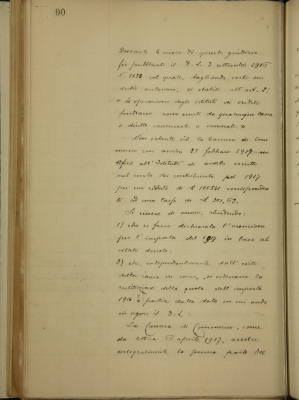 90
Durante le more di questo giudizio
fu pubblicato il D. L. 3 settembre 1916
N. 1152 col quale, togliendo
diritto anteriore, si stabilì all'art. 2:
" le operazioni degli istituti di credito
fondiario sono esenti da qualunque tassa
o diritto comunale o camerale. "
Non volente ciò la Camera di Com
mercio con avviso 23 febbraio 1917
all'Istituto di averlo inscritto
nel ruolo dei contribuenti pel 1917
per un reddito di corrisponden
te ad una tassa di
Si ricorse di nuovo, chiedendo:
1) che si fosse dichiarata l'esenzione
per l'imposta del 1917 in base al
citato decreto.
2) che, indipendentemente dall'esito
della causa in corso, si ordinasse la
restituzione della quota dell'imposta
1916 a partire dalla data in cui andò
in vigore il D. L.
La Camera di Commercio, come
da aprile 1917, accolse
integralmente la prima parte del